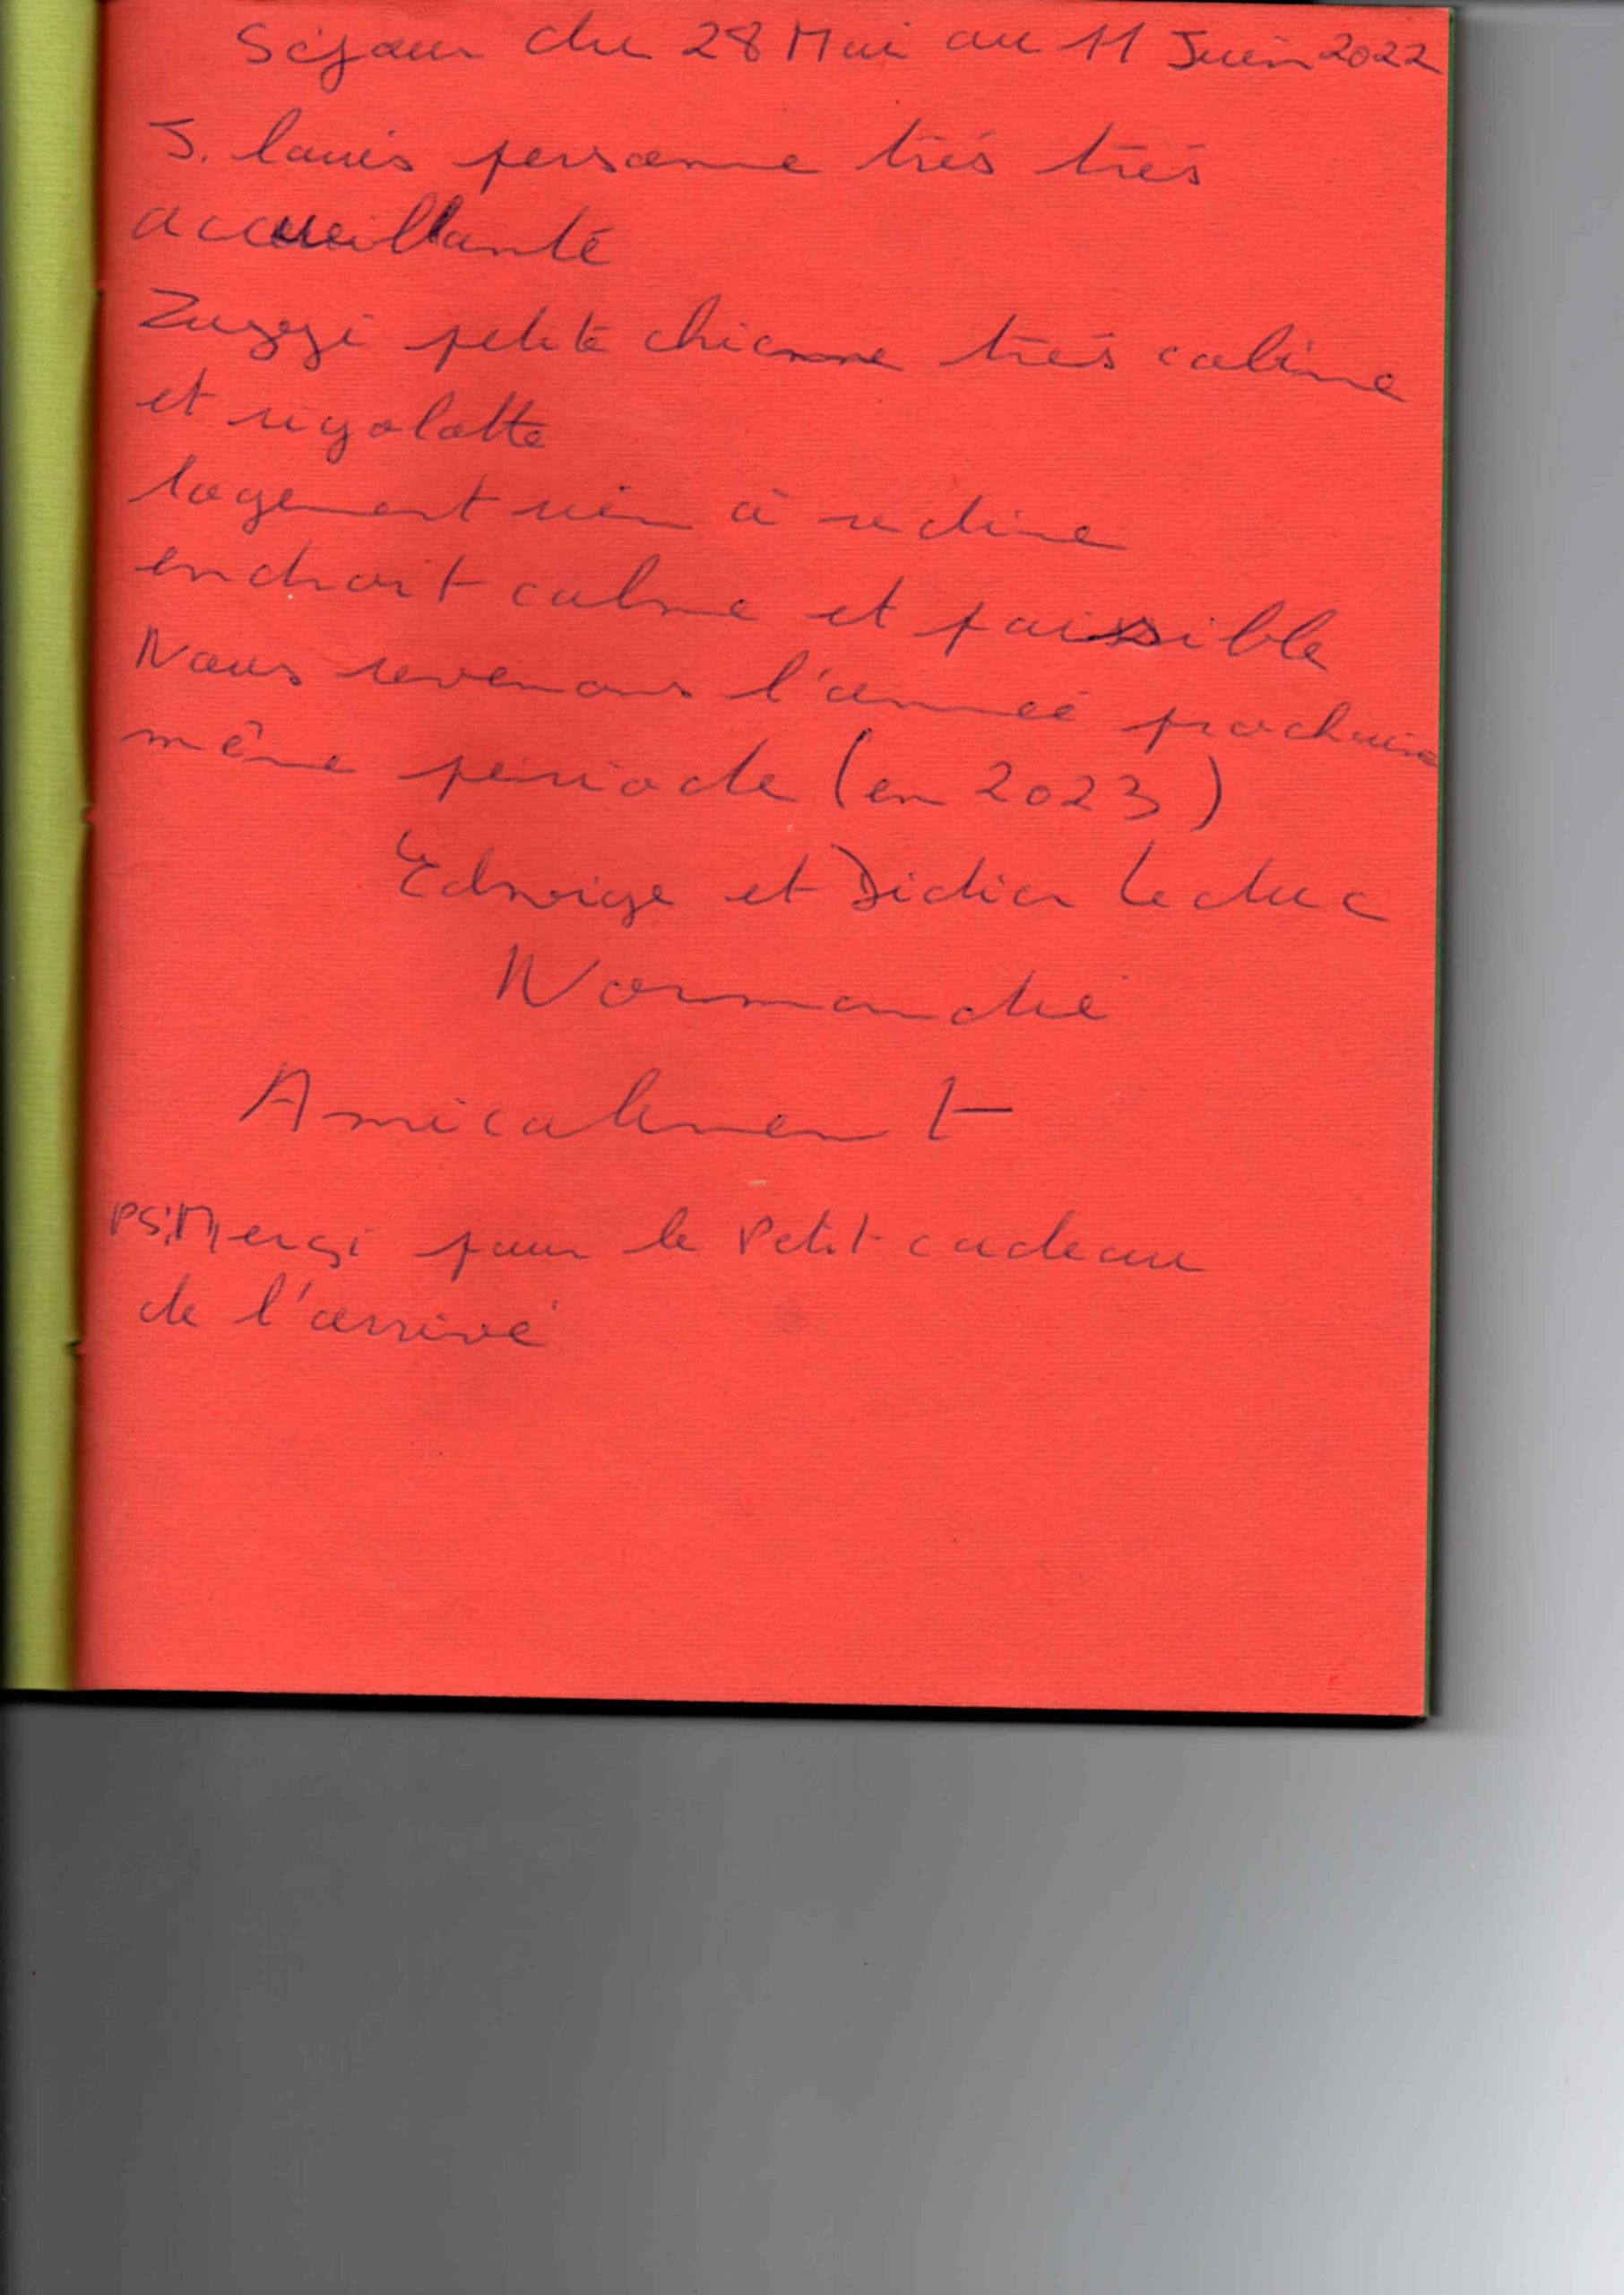 Séjour du 28 Mai au 11 Juin 2022
J. louis personne très très
accueillante
Zuzzi petite chienne très caline
et rigolotte
logement rien à redire
endroit calme et paissible
Nous revenons l'année prochaine
même période (en 2023)
Edwige et Didier Leduc
Normandie
Amicalement
PS: Merçi pour le Petit cadeau
de l'arrivé